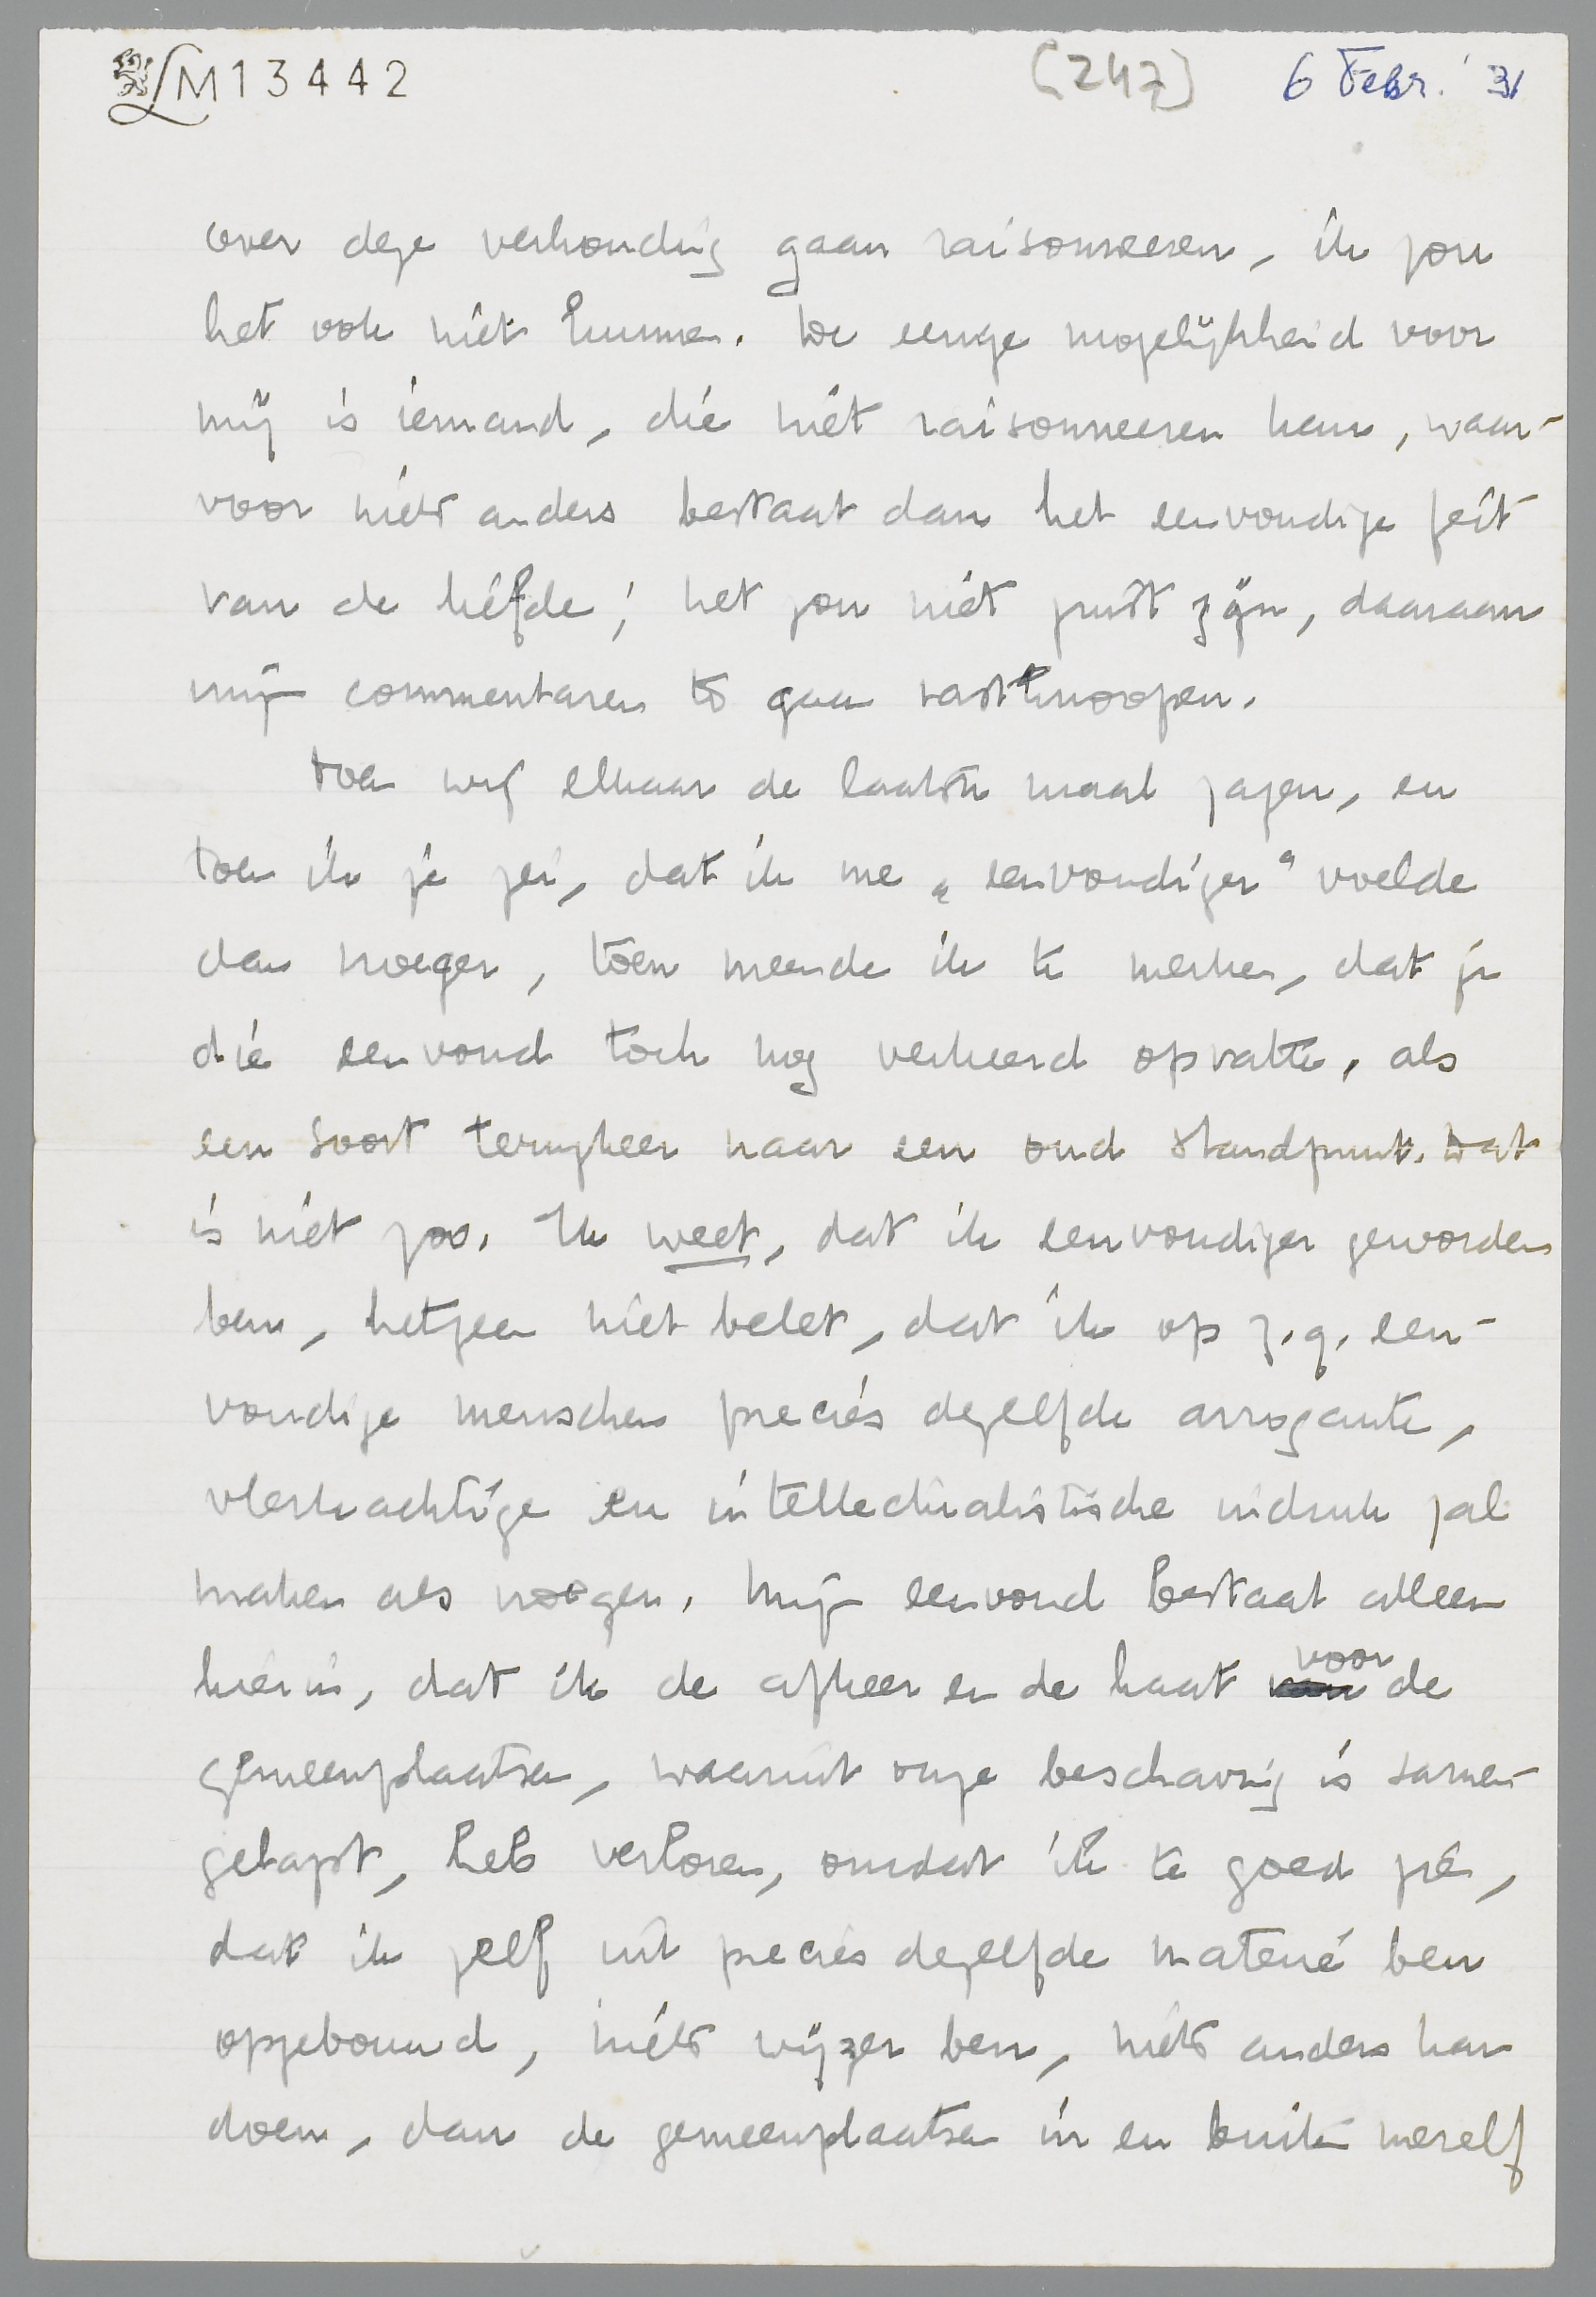 LM 13442 (247) 6 Febr. '31
over deze verhouding gaan raisonneeren, ik zou
het ook niet kunnen. De eenige mogelijkheid voor
mij is iemand, die niet raisonneeren kan, waar-
voor niets anders bestaat dan het eenvoudige feit
van de liefde; het zou niet juist zijn, daaraan
mijn commentaren te gaan vastknoopen.
Toen wij elkaar de laatste maal zagen, en
toen ik je zei, dat ik me „eenvoudiger” voelde
dan vroeger, toen meende ik te merken, dat je
die eenvoud toch nog verkeerd opvatte, als
een soort terugkeer naar een oud standpunt. Dat
is niet zoo. Ik weet, dat ik eenvoudiger geworden
ben, hetgeen niet belet, dat ik op z.g. een-
voudige menschen precies dezelfde arrogante,
vlerkachtige en intellectualistische indruk zal
maken als vroeger. Mijn eenvoud bestaat alleen
hierin, dat ik de afkeer en de haat van voor de
gemeenplaatsen, waaruit onze beschaving is samen-
gelapt, heb verloren, omdat ik te goed zie,
dat ik zelf uit precies dezelfde materie ben
opgebouwd, niets wijzer ben, niets anders kan
doen, dan de gemeenplaatsen in en buiten mezelf